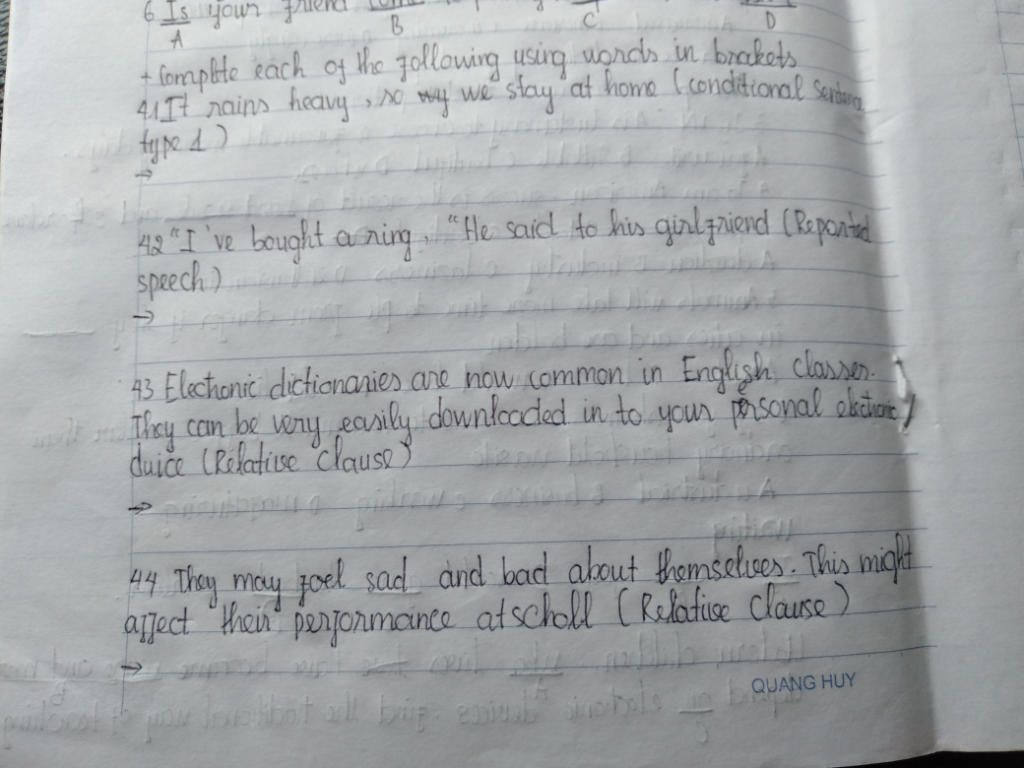 6 Is your friend
A B C D
+ Complete each of the following using words in brackets
41 It rains heavy, so we stay at home (conditional
type 1)
→
42 "I've bought a ring, "He said to his girlfriend (Reported
speech)
→
43 Electronic dictionaries are now common in English classes.
They can be very easily downloaded in to your personal electronic
duice (Relative clause)
→
44 They may feel sad and bad about themselves. This might
affect their performance at scholl (Relative clause)
→
QUANG HUY